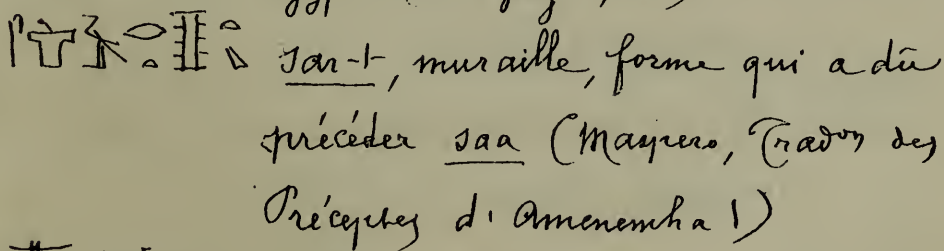 sar-t, muraille, forme qui a dû
précéder saa (Maspero, Trad.on des
Préceptes d'Amenemha I)